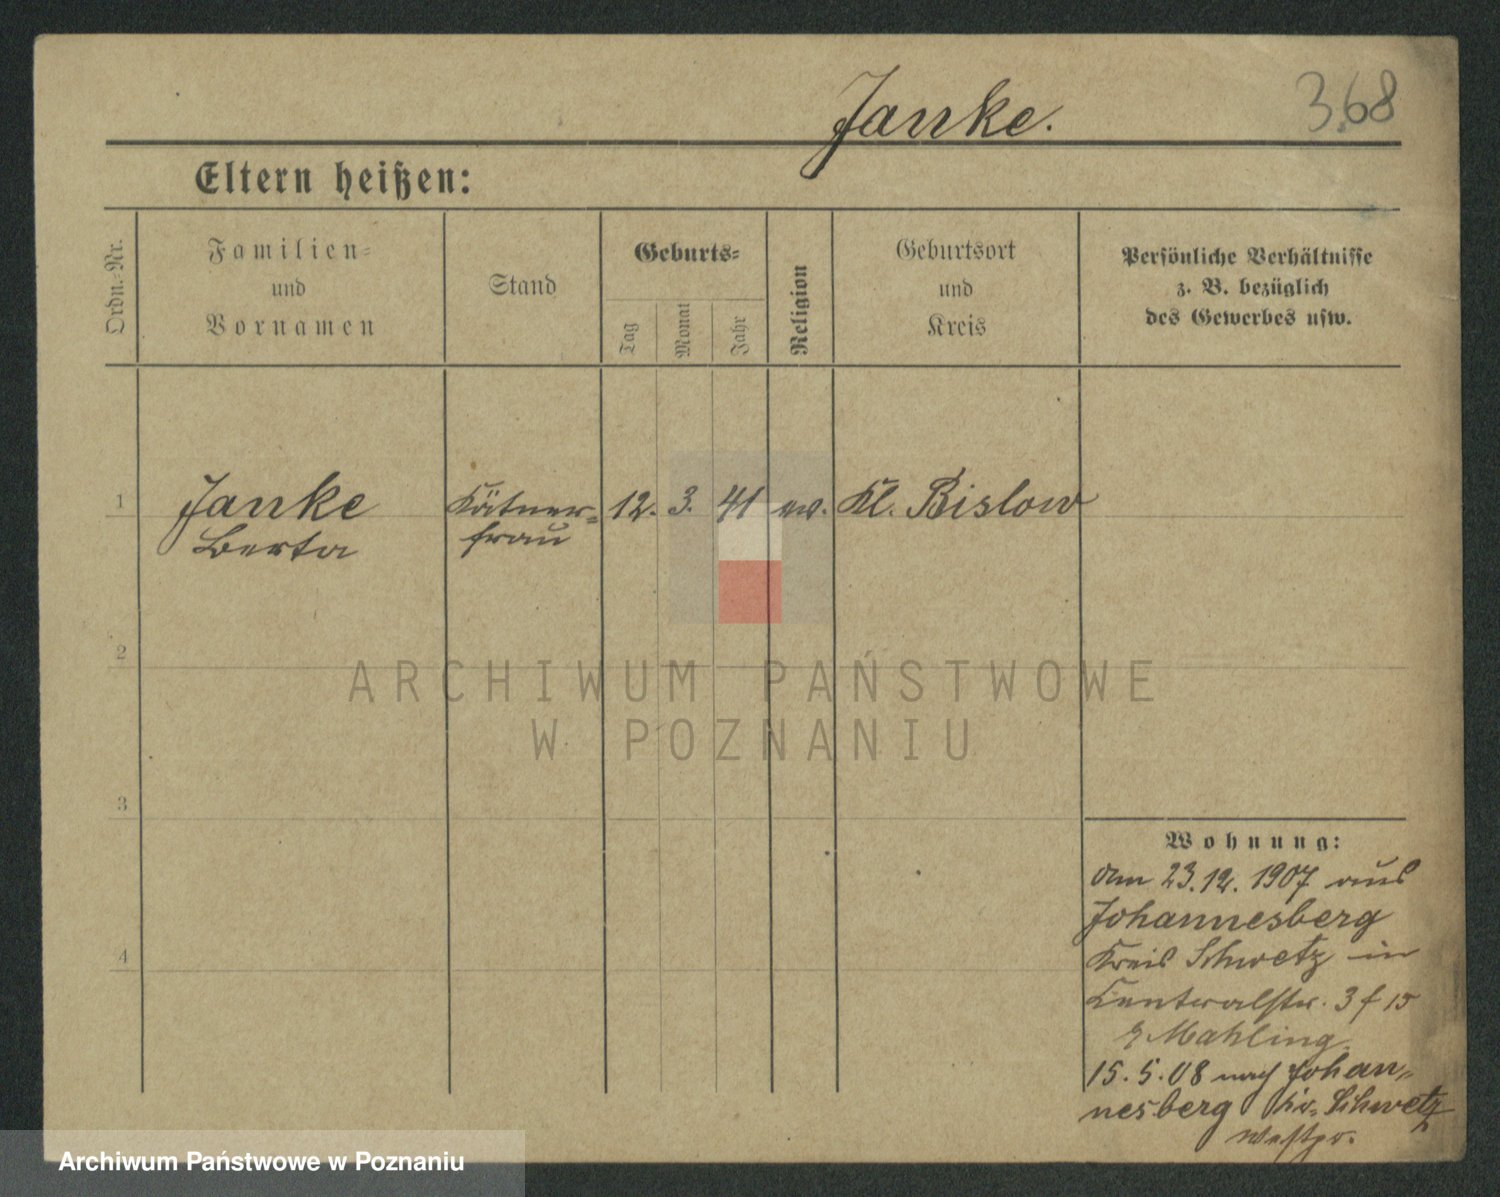 Janke.
368
Eltern heißen:
Ordn.-Nr.
Familien-
und
Vornamen
Stand
Geburts-
Tag
Monat
Jahr
Religion
Geburtsort
und
Kreis
Persönliche Verhältnisse
z. B. bezüglich
des Gewerbes usw.
1
Janke
Berta
Kätner-
frau
12.
3.
41
ev.
Kl. Bislow
2
ARCHIWUM PAŃSTWOWE
W POZNANIU
3
4
Wohnung:
am 23.12.1907 aus
Johannesberg
Kreis Schwetz in
Centralstr. 3
Mahling.
15.5.08 nach Johan-
nesberg Kr. Schwetz
Westpr.
Archiwum Państwowe w Poznaniu